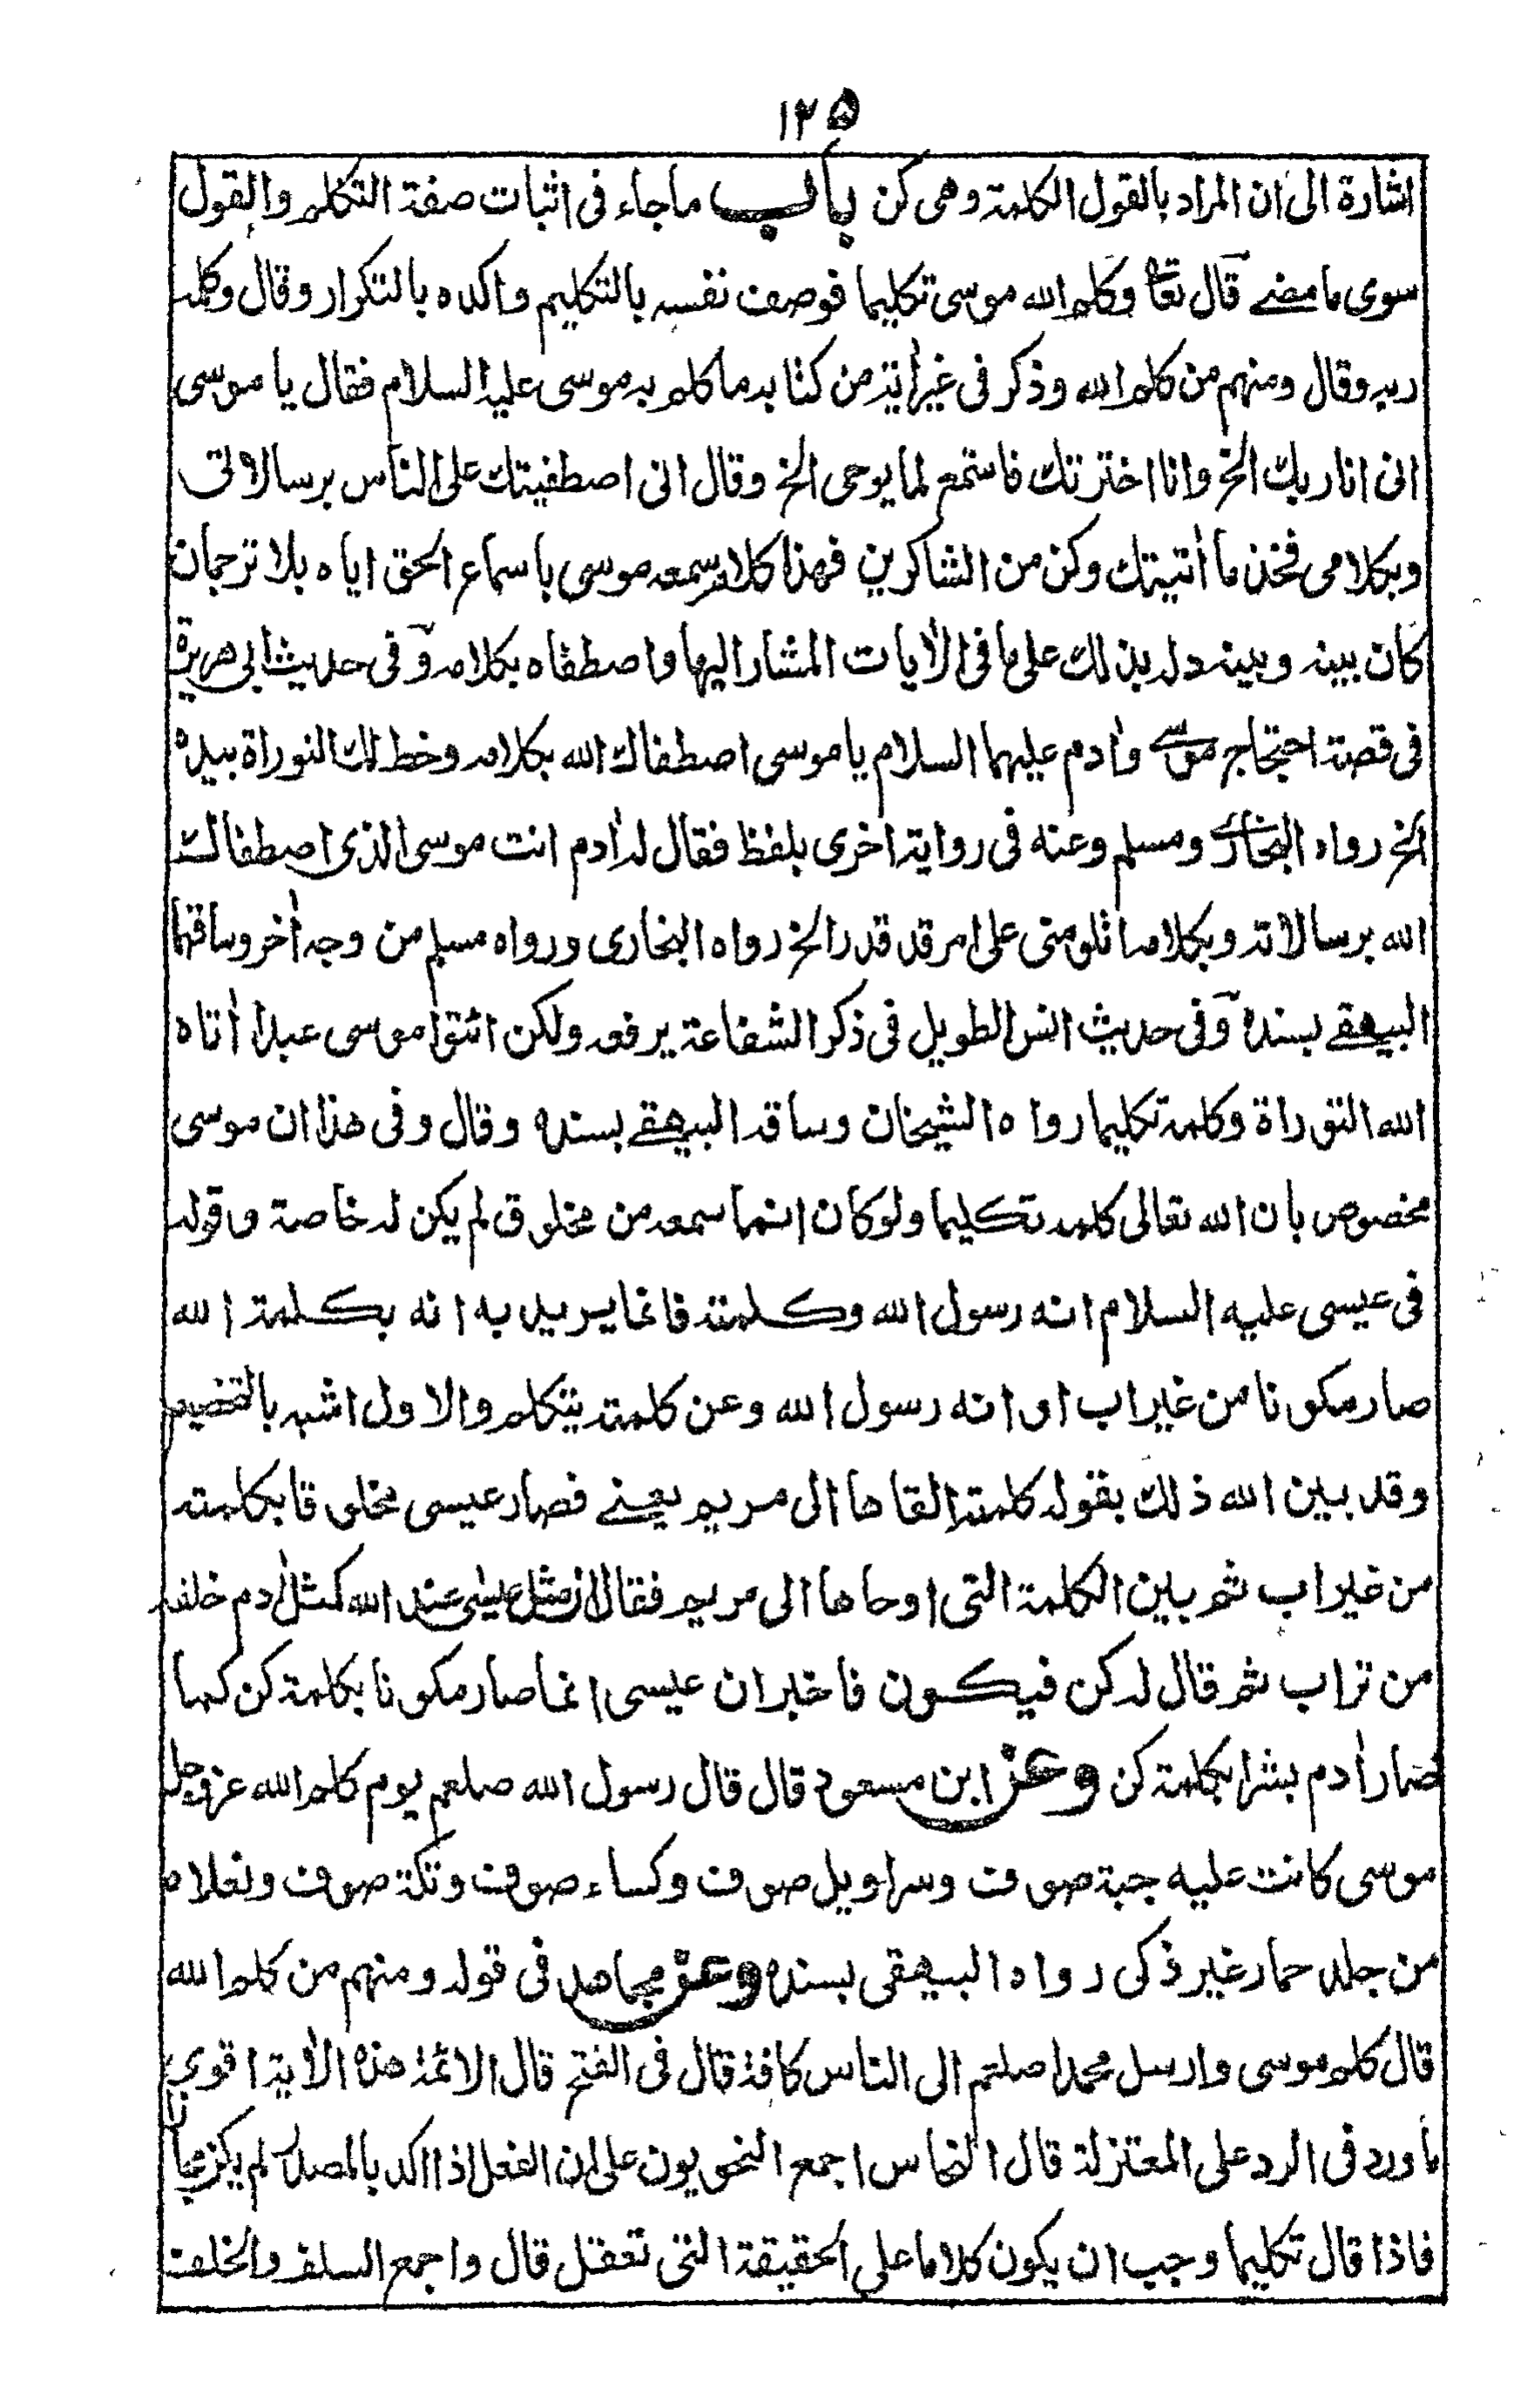 ١٢٥
اشارة الى ان المراد بالقول الكلمة وهى كن باب ماجاء فى اثبات صفة التكلم والقول
سوى ما مضے قال تعا وكلم الله موسى تكليما فوصف نفسه بالتكليم واكده بالتكرار وقال وكلمه
ربه وقال ومنهم من كلم الله وذكر فى غير أية من كتابه ما كلم به موسى عليه السلام فقال يا موسى
انى انا ربك الخ وانا اخترتك فاستمع لما يوحى الخ وقال انى اصطفيتك على الناس برسالاتى
وبكلامى فخذ ما أتيتك وكن من الشاكرين فهذا كلام سمعه موسى باسماع الحق اياه بلا ترجمان
كان بينه وبينه دله بذلك على ما فى الأيات المشار اليها واصطفاه بكلامه وفى حديث ابى هريرة
فى قصة احتجاج موسے وأدم عليهما السلام يا موسى اصطفاك الله بكلامه وخط لك التوراة بيده
الخ رواه البخارى ومسلم وعنه فى رواية اخرى بلفظ فقال له أدم انت موسى الذى اصطفاك
الله برسالاته وبكلامه اتلومنى على امر قد قدر الخ رواه البخارى ورواه مسلم من وجه أخر وساقهما
البيهقے بسنده وفى حديث انس الطويل فى ذكر الشفاعة يرفعه ولكن ائتوا موسى عبدا أتاه
الله التوراة وكلمه تكليما رواه الشيخان وساقه البيهقے بسنده وقال وفى هذا ان موسى
مخصوص بان الله تعالى كلمه تكليما ولو كان انما سمعه من مخلوق لم يكن له خاصة وقوله
فى عيسى عليه السلام انه رسول الله وكلمته فانما يريد به انه بكلمة الله
صار مكونا من غير اب او انه رسول الله وعن كلمته يتكلم والاول اشبه بالتخصيص
وقد بين الله ذلك بقوله كلمته القاها الى مريم يعنے فصار عيسى مخلوقا بكلمته
من غير اب ثم بين الكلمة التى اوحاها الى مريم فقال ان مثل عيسى عند الله كمثل أدم خلقه
من تراب ثم قال له كن فيكون فاخبر ان عيسى انما صار مكونا بكلمة كن كما
صار أدم بشرا بكلمة كن وعن ابن مسعود قال قال رسول الله صلعم يوم كلم الله عز وجل
موسى كانت عليه جبة صوف وسراويل صوف وكساء صوف وتكة صوف ونعلاه
من جلد حمار غير ذكى رواه البيهقى بسنده وعن مجاهد فى قوله ومنهم من كلم الله
قال كلم موسى وارسل محمدا صلعم الى الناس كافة قال فى الفتح قال الائمة هذه الأية اقوى
ما ورد فى الرد على المعتزلة قال النحاس اجمع النحويون على ان الفعل اذا اكد بالمصدر لم يكن مجازا
فاذا قال تكليما وجب ان يكون كلاما على الحقيقة التى تعقل قال واجمع السلف والخلف